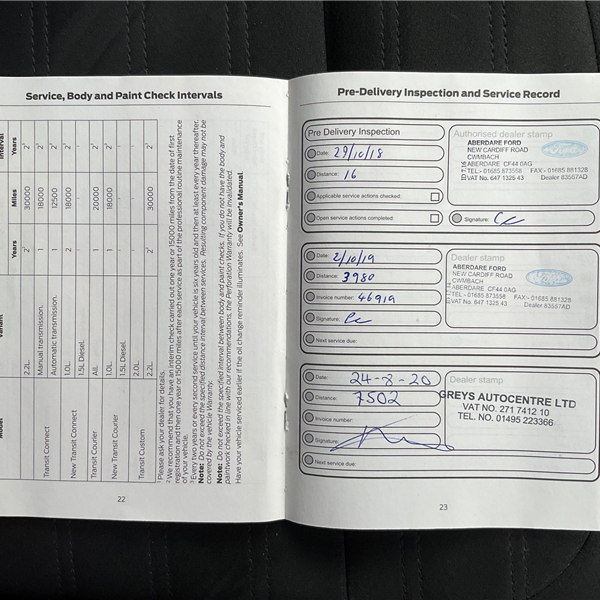 Service, Body and Paint Check Intervals
Model
Variant
Years
Miles
Interval
Years
2.2L.
2²
30000
2²
Transit Connect
Manual transmission.
1
18000
2²
Automatic transmission.
1
12500
2²
New Transit Connect
1.0L.
2
18000
2²
1.5L Diesel.
-
-
-
Transit Courier
All.
1
20000
2²
New Transit Courier
1.0L.
1
18000
2²
1.5L Diesel.
-
-
-
Transit Custom
2.0L.
-
-
-
2.2L.
2²
30000
2²
¹ Please ask your dealer for details.
² We recommend that you have an interim check carried out one year or 15000 miles from the date of first
registration and then one year or 15000 miles after each service as part of the professional routine maintenance
of your vehicle.
³ Every two years or every second service until your vehicle is six years old and then at least every year thereafter.
Note: Do not exceed the specified distance interval between services. Resulting component damage may not be
covered by the vehicle Warranty.
Note: Do not exceed the specified interval between body and paint checks. If you do not have the body and
paintwork checked in line with our recommendations, the Perforation Warranty will be invalidated.
Have your vehicle serviced earlier if the oil change reminder illuminates. See Owner's Manual.
22
Pre-Delivery Inspection and Service Record
Pre Delivery Inspection
Date: 29/10/18
Distance: 16
Applicable service actions checked:
Open service actions completed:
Authorised dealer stamp
ABERDARE FORD
NEW CARDIFF ROAD
CWMBACH
ABERDARE CF44 0AG
TEL - 01685 873558 FAX - 01685 881328
VAT No. 647 1325 43 Dealer 83557AD
Ford
Signature:
Date: 2/10/19
Distance: 3980
Invoice number: 46919
Signature:
Next service due:
Dealer stamp
ABERDARE FORD
NEW CARDIFF ROAD
CWMBACH
ABERDARE CF44 0AG
TEL - 01685 873558 FAX - 01685 881328
VAT No. 647 1325 43 Dealer 83557AD
Ford
Date: 24-8-20
Distance: 7502
Invoice number:
Signature:
Next service due:
Dealer stamp
GREYS AUTOCENTRE LTD
VAT NO. 271 7412 10
TEL. NO. 01495 223366
23